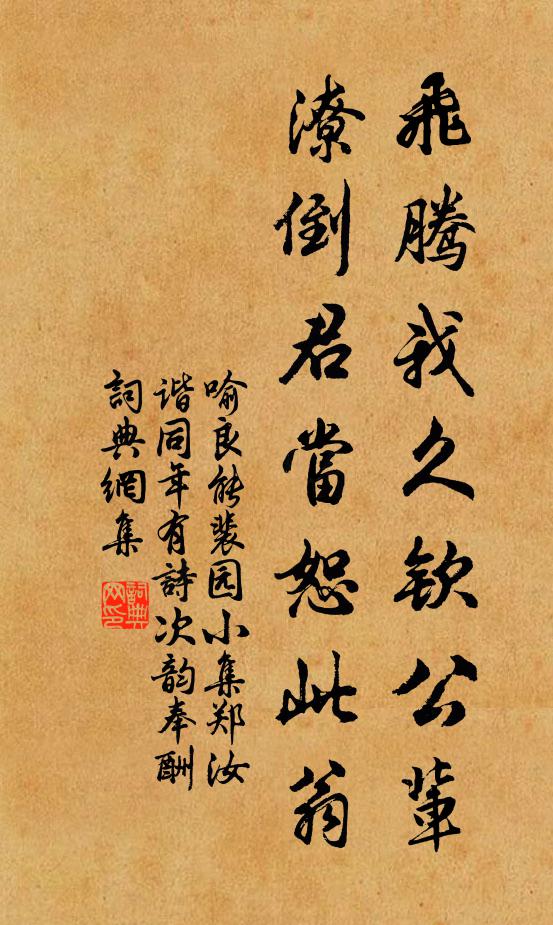 飛騰我久欽公輩
潦倒君當恕此翁
喻良能裴园小集郑汝
谐同年有詩次韵奉酬
詞典網集
詞典
网印